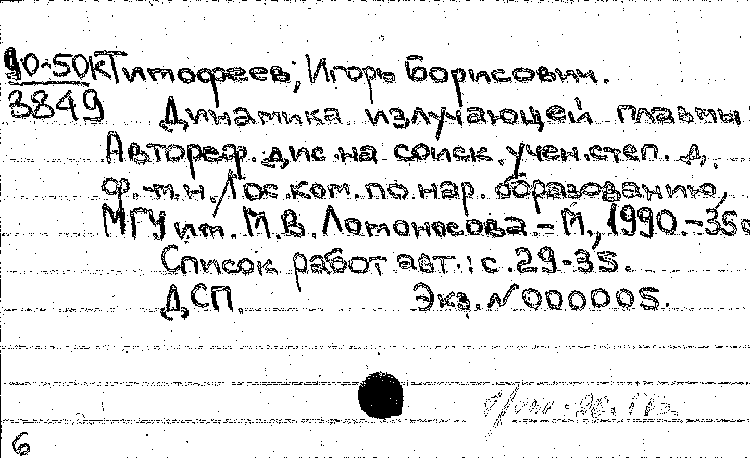 90-50к Тимофеев, Игорь Борисович.
3849 Динамика излучающей плазмы
Автореф. дис. на соиск. учен. степ. д.
ф.-м.н. /Гос. ком. по нар. образованию,
МГУ им. М.В. Ломоносова. - М., 1990. - 35с
Список работ авт.: с. 29-35.
ДСП. Экз. N 000005.
6